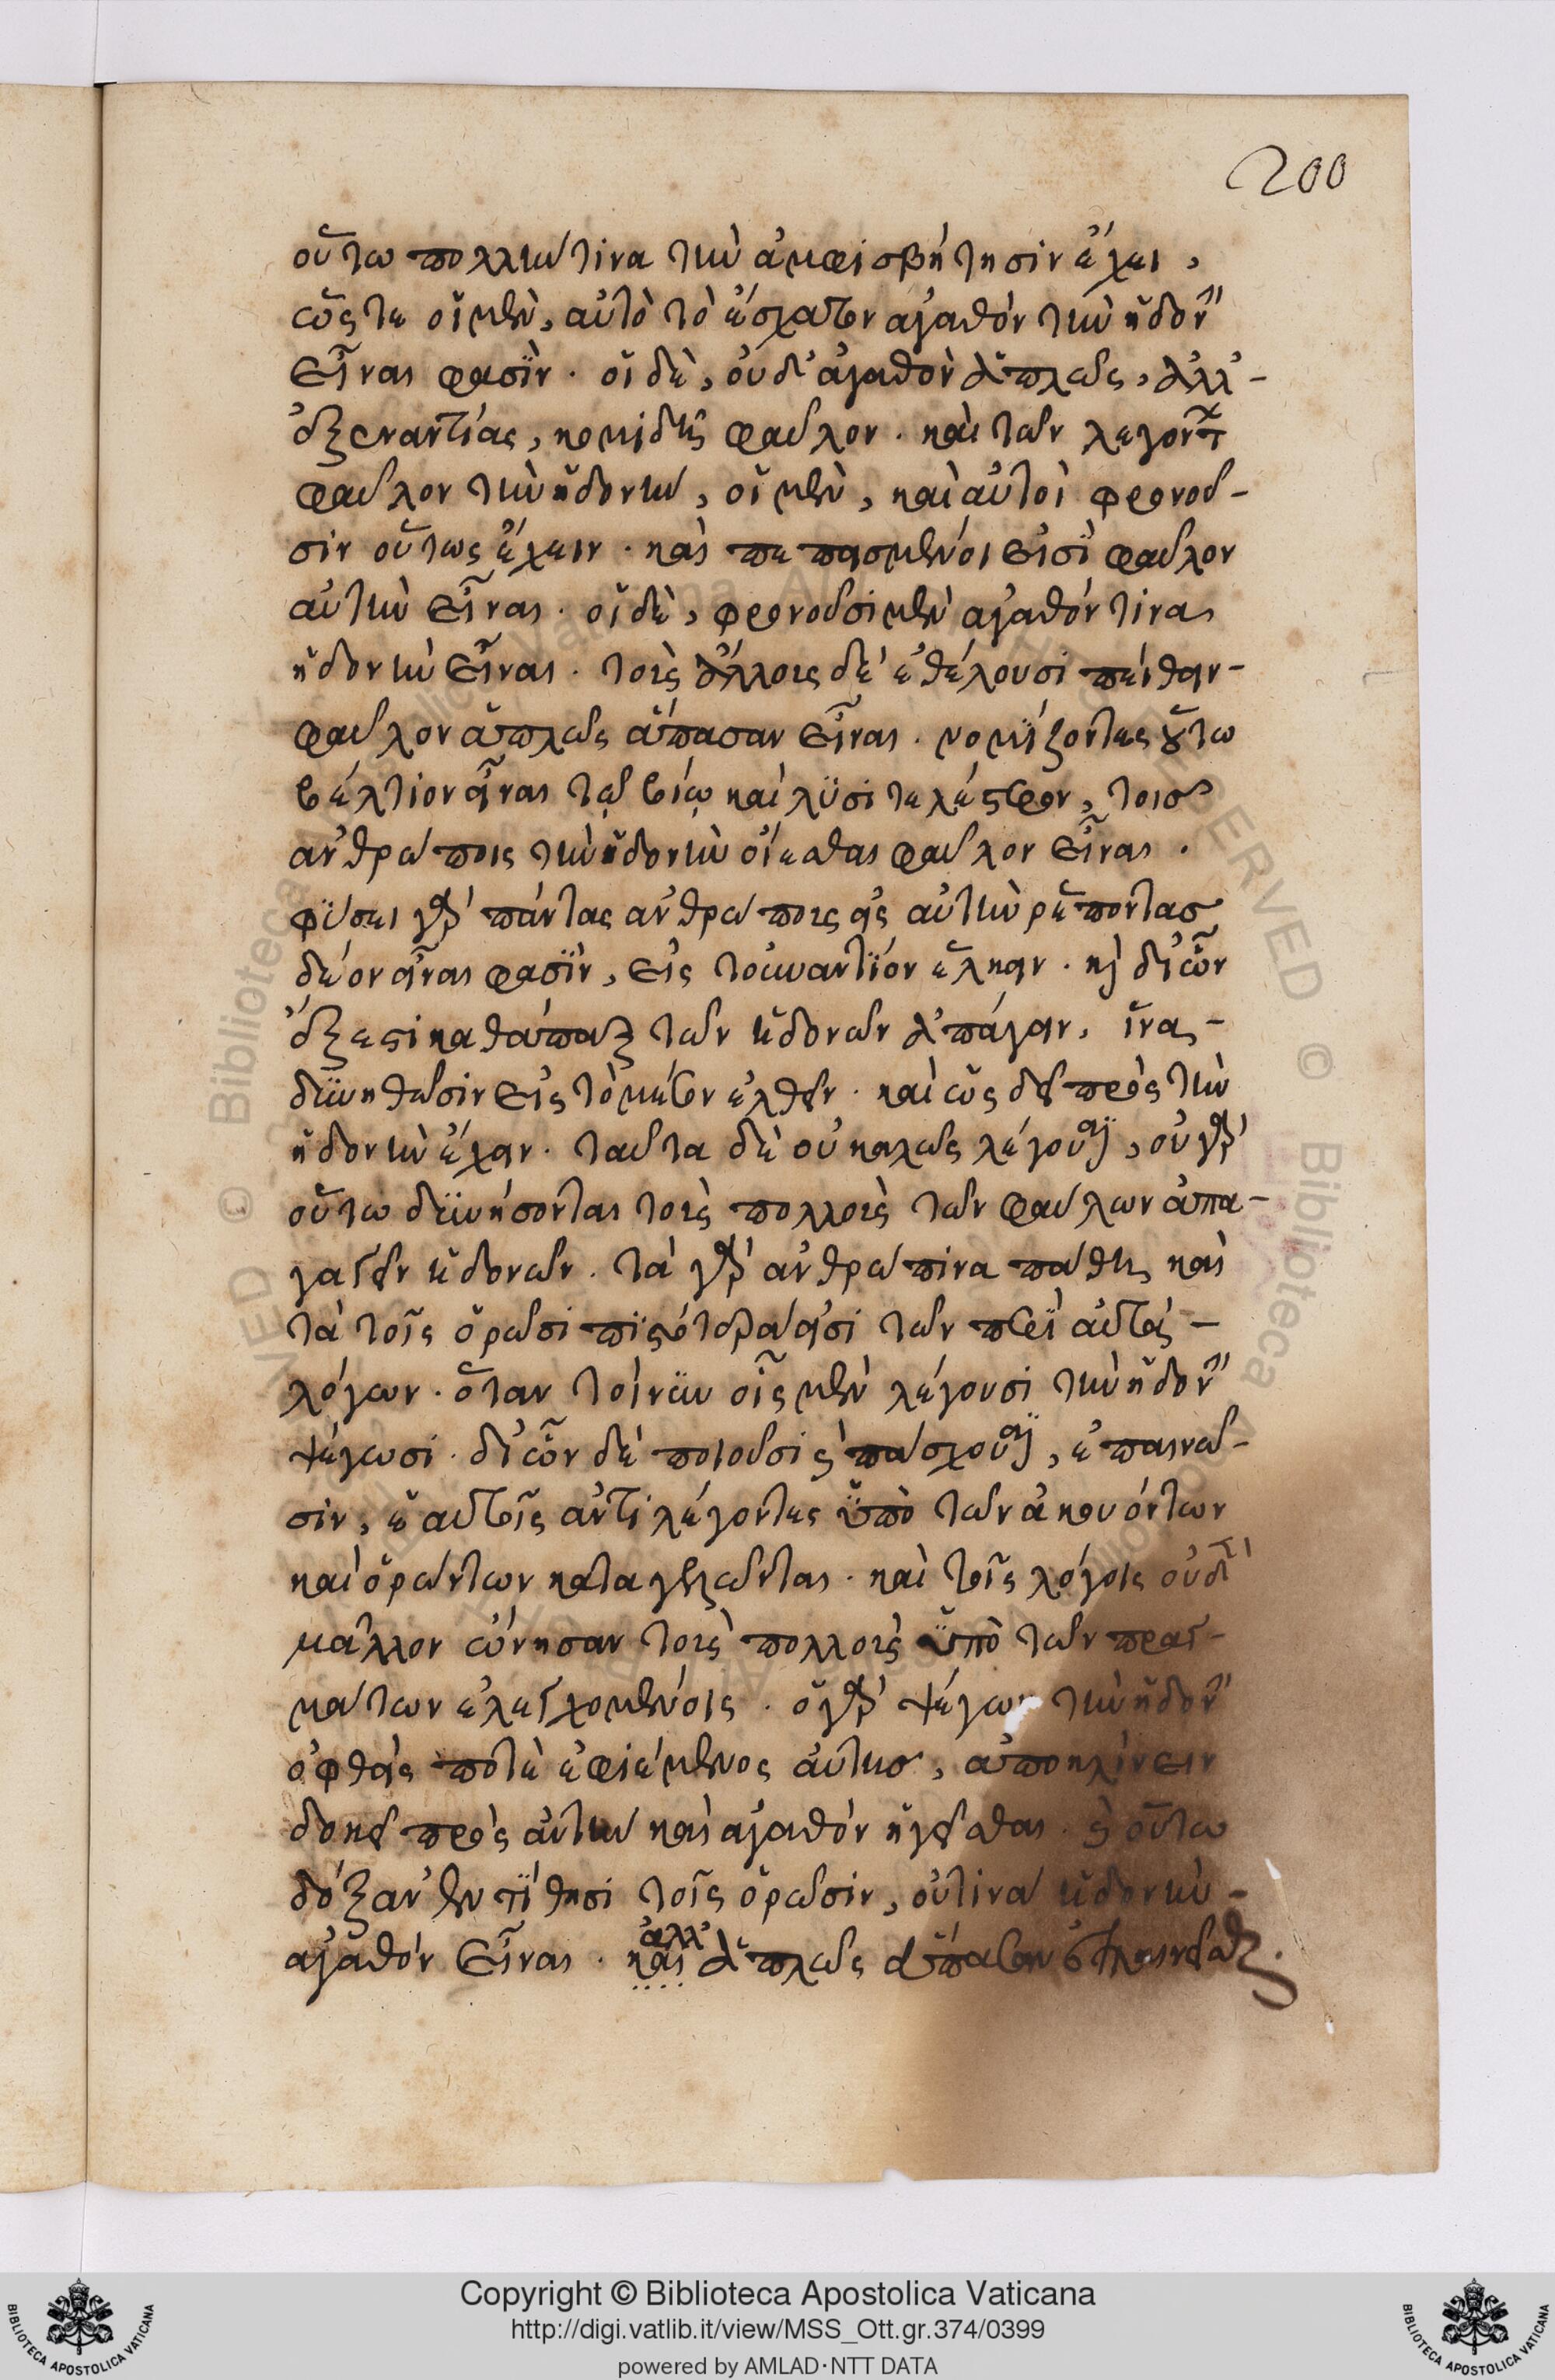 200
οὕτω πολλὴν τινα τὴν ἀμφισβήτησιν ἔχει,
ὥστε οἱ μὲν, αὐτὸ τὸ ἔσχατον ἀγαθόν τὴν ἡδον(ὴν)
εἶναι φασϊν. οἱ δὲ, οὐδ' ἀγαθὸν ἁπλῶς, ἀλλ'-
ἐξεναντίας, κομιδῆ φαῦλον. καὶ τῶν λεγόντ(ων)
φαῦλον τὴν ἡδονὴν, οἱ μὲν, καὶ αὐτοὶ φρονοῦ-
σιν οὕτως ἔχειν. καὶ πεπεισμένοι εἰσὶ φαῦλον
αὐτὴν εἶναι. οἱ δὲ, φρονοῦσι μὲν ἀγαθόν τινα
ἡδονὴν εἶναι. τοὺς ἄλλους δὲ ἐθέλουσι πείθειν-
φαῦλον ἁπλῶς ἅπασαν εἶναι. νομίζοντες οὕτω
βέλτιον εἶναι τῷ βίῳ καὶ λϋσιτελέστερον, τοὺσ
ἀνθρώπους τὴν ἡδονὴν οἴεσθαι φαῦλον εἶναι.
φύσει γὰρ πάντας ἀνθρώπους εἰς αὐτὴν ῥέποντασ
δέον εἶναι φασϊν, εἰς τοὐναντίον ἕλκειν. καὶ δι' ὧν
ἔξεστι καθάπαξ τῶν ἡδονῶν ἀπάγειν, ἵνα-
δϋνηθῶσιν εἰς τὸ μέσον ἐλθεῖν. καὶ ὡς δεῖ πρὸς τὴν
ἡδονὴν ἔχειν. ταῦτα δὲ οὐ καλῶς λέγουσϊν, οὐ γὰρ
οὕτω δϋνήσονται τοὺς πολλοὺς τῶν φαύλων ἀπα-
γαγεῖν ἡδονῶν. τὰ γὰρ ἀνθρώπινα πάθη, καὶ
τὰ τοῖς ὁρῶσι πϊστότερα εἰσι τῶν περὶ αὐτὰ-
λόγων. ὅταν τοίνϋν οἷς μὲν λέγουσι τὴν ἡδον(ὴν)
ψέγωσι. δι' ὧν δὲ ποιοῦσι καὶ πάσχουσϊν, ἐπαινῶ-
σιν, ἑαυτοῖς ἀντιλέγοντες ὑπὸ τῶν ἀκουόντων
καὶ ὁρώντων καταγελῶνται. καὶ τοῖς λόγοις οὐδὲν
μᾶλλον ὤνησαν τοὺς πολλοὺς ὑπὸ τῶν πραγ-
μάτων ἐλεγχομένοις. ὁ γὰρ ψέγων τὴν ἡδον(ὴν)
ὀφθεὶς ποτὲ ἐφιέμενος αὐτῆσ, ἀποκλίνειν
δοκεῖ πρὸς αὐτὴν καὶ ἀγαθόν ἡγεῖσθαι. καὶ οὕτω
δόξαν ἐντίθησι τοῖς ὁρῶσιν, οὔτινα ἡδονὴν-
ἀγαθόν εἶναι. καὶ ἀλλ' ἁπλῶς ἅπασαν